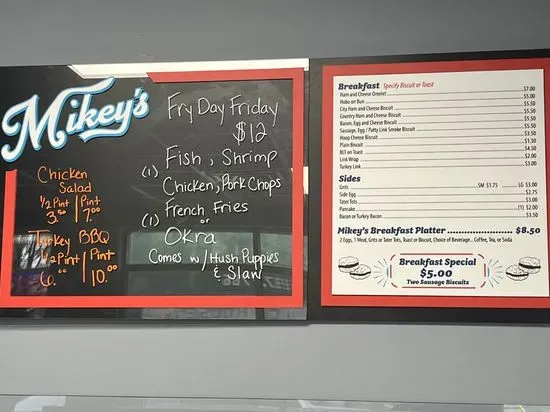 Mikey's
Chicken
Salad
1/2 Pint | Pint
3.50 | 7.00
Turkey BBQ
1/2 Pint | Pint
6.00 | 10.00
Fry Day Friday
$12
Fish, Shrimp
(1) Chicken, Pork Chops
French Fries
(1) or
OKra
Comes w/ Hush Puppies
& Slaw
Breakfast Specify Biscuit or Toast
Ham and Cheese Omelet $7.00
Hobo on Bun $5.00
City Ham and Cheese Biscuit $5.50
Country Ham and Cheese Biscuit $5.50
Bacon, Egg and Cheese Biscuit $5.50
Sausage, Egg / Patty Link Smoke Biscuit $5.50
Hoop Cheese Biscuit $3.50
Plain Biscuit $1.50
BLT on Toast $4.50
Link Wrap $2.00
Turkey Link $3.00
Sides
Grits SM $1.75 LG $3.00
Side Egg $2.75
Tater Tots $3.00
Pancake (1) $2.00
Bacon or Turkey Bacon $3.50
Mikey's Breakfast Platter $8.50
2 Eggs, 1 Meat, Grits or Tater Tots, Toast or Biscuit, Choice of Beverage... Coffee, Tea, or Soda
Breakfast Special
$5.00
Two Sausage Biscuits